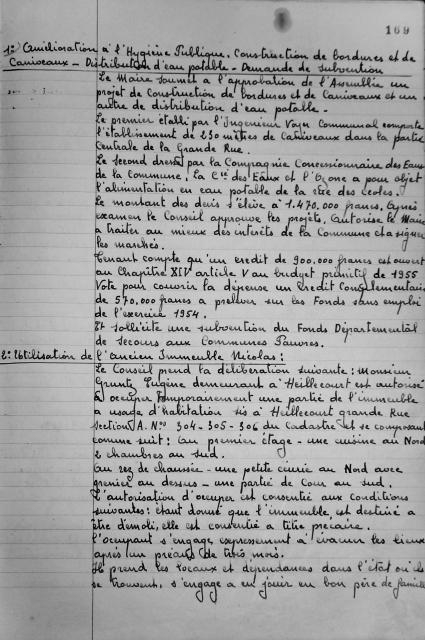 169
1º Amélioration à l'Hygiène Publique. Construction de bordures et de
Caniveaux - Distribution d'eau potable - Demande de subvention
Le Maire soumet à l'approbation de l'Assemblée un
projet de Construction de bordures et de Caniveaux et un
autre de distribution d'eau potable.
Le premier établi par l'Ingénieur Voyer Communal comporte
l'établissement de 230 mètres de Caniveaux dans la partie
Centrale de la Grande Rue.
Le second dressé par la Compagnie Concessionnaire des Eaux
de la Commune. La Cie des Eaux et l'Ozone a pour objet
l'alimentation en eau potable de la des écoles.
Le montant des devis s'élève à 1.470.000 francs. Après
examen le Conseil approuve les projets. Autorise le Maire
à traiter au mieux des intérêts de la Commune et à signer
les marchés.
Tenant compte qu'un crédit de 900.000 francs est ouvert
au Chapitre XIV article V au budget primitif de 1955
Vote pour couvrir la dépense un Crédit Complémentaire
de 570.000 francs à prélever sur les Fonds sans emploi
de l'exercice 1954.
Et sollicite une subvention du Fonds Départemental
de Secours aux Communes Pauvres.
2º Utilisation de l'ancien Immeuble Nicolas :
Le Conseil prend la délibération suivante : Monsieur
Eugène demeurant à Heillecourt est autorisé
à occuper temporairement une partie de l'immeuble
à usage d'habitation sis à Heillecourt grande Rue
Section A. Nos 304-305-306 du Cadastre et se composant
comme suit : Au premier étage - une cuisine au Nord
2 chambres au sud.
Au rez de chaussée - une petite écurie au Nord avec
grenier au dessus - une partie de Cour au sud.
L'autorisation d'occuper est consentie aux conditions
suivantes : étant donné que l'immeuble est destiné à
être démoli, elle est consentie à titre précaire.
L'occupant s'engage expressément à évacuer les lieux
après un préavis de trois mois.
Il prend les locaux et dépendances dans l'état où ils
se trouvent, s'engage à en jouir en bon père de famille